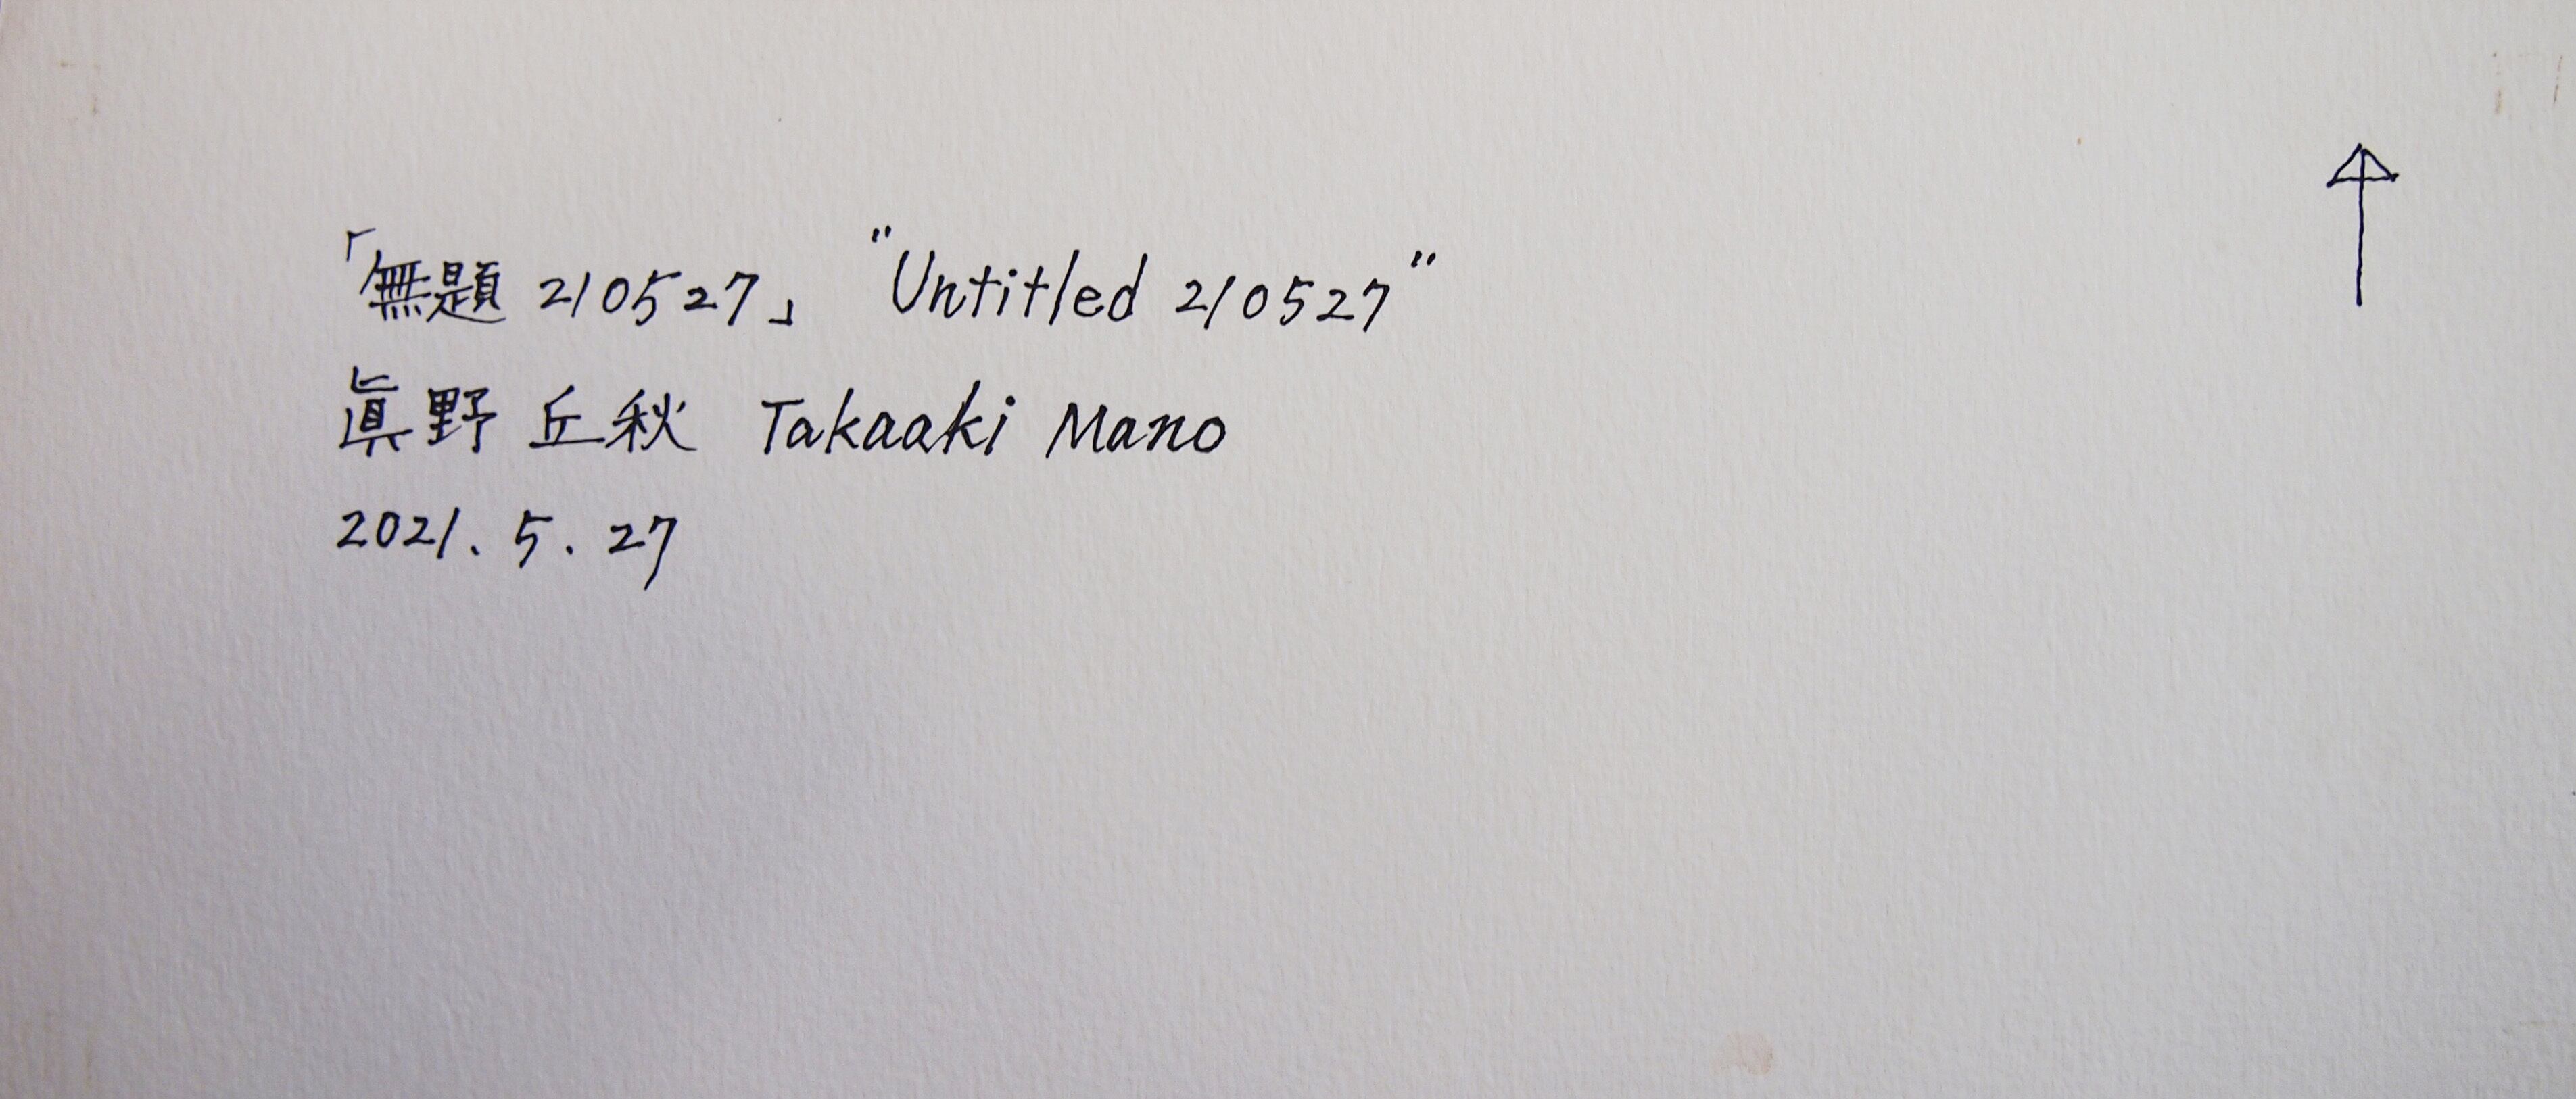 「無題 210527」 "Untitled 210527"
眞野 丘秋 Takaaki Mano
2021. 5. 27